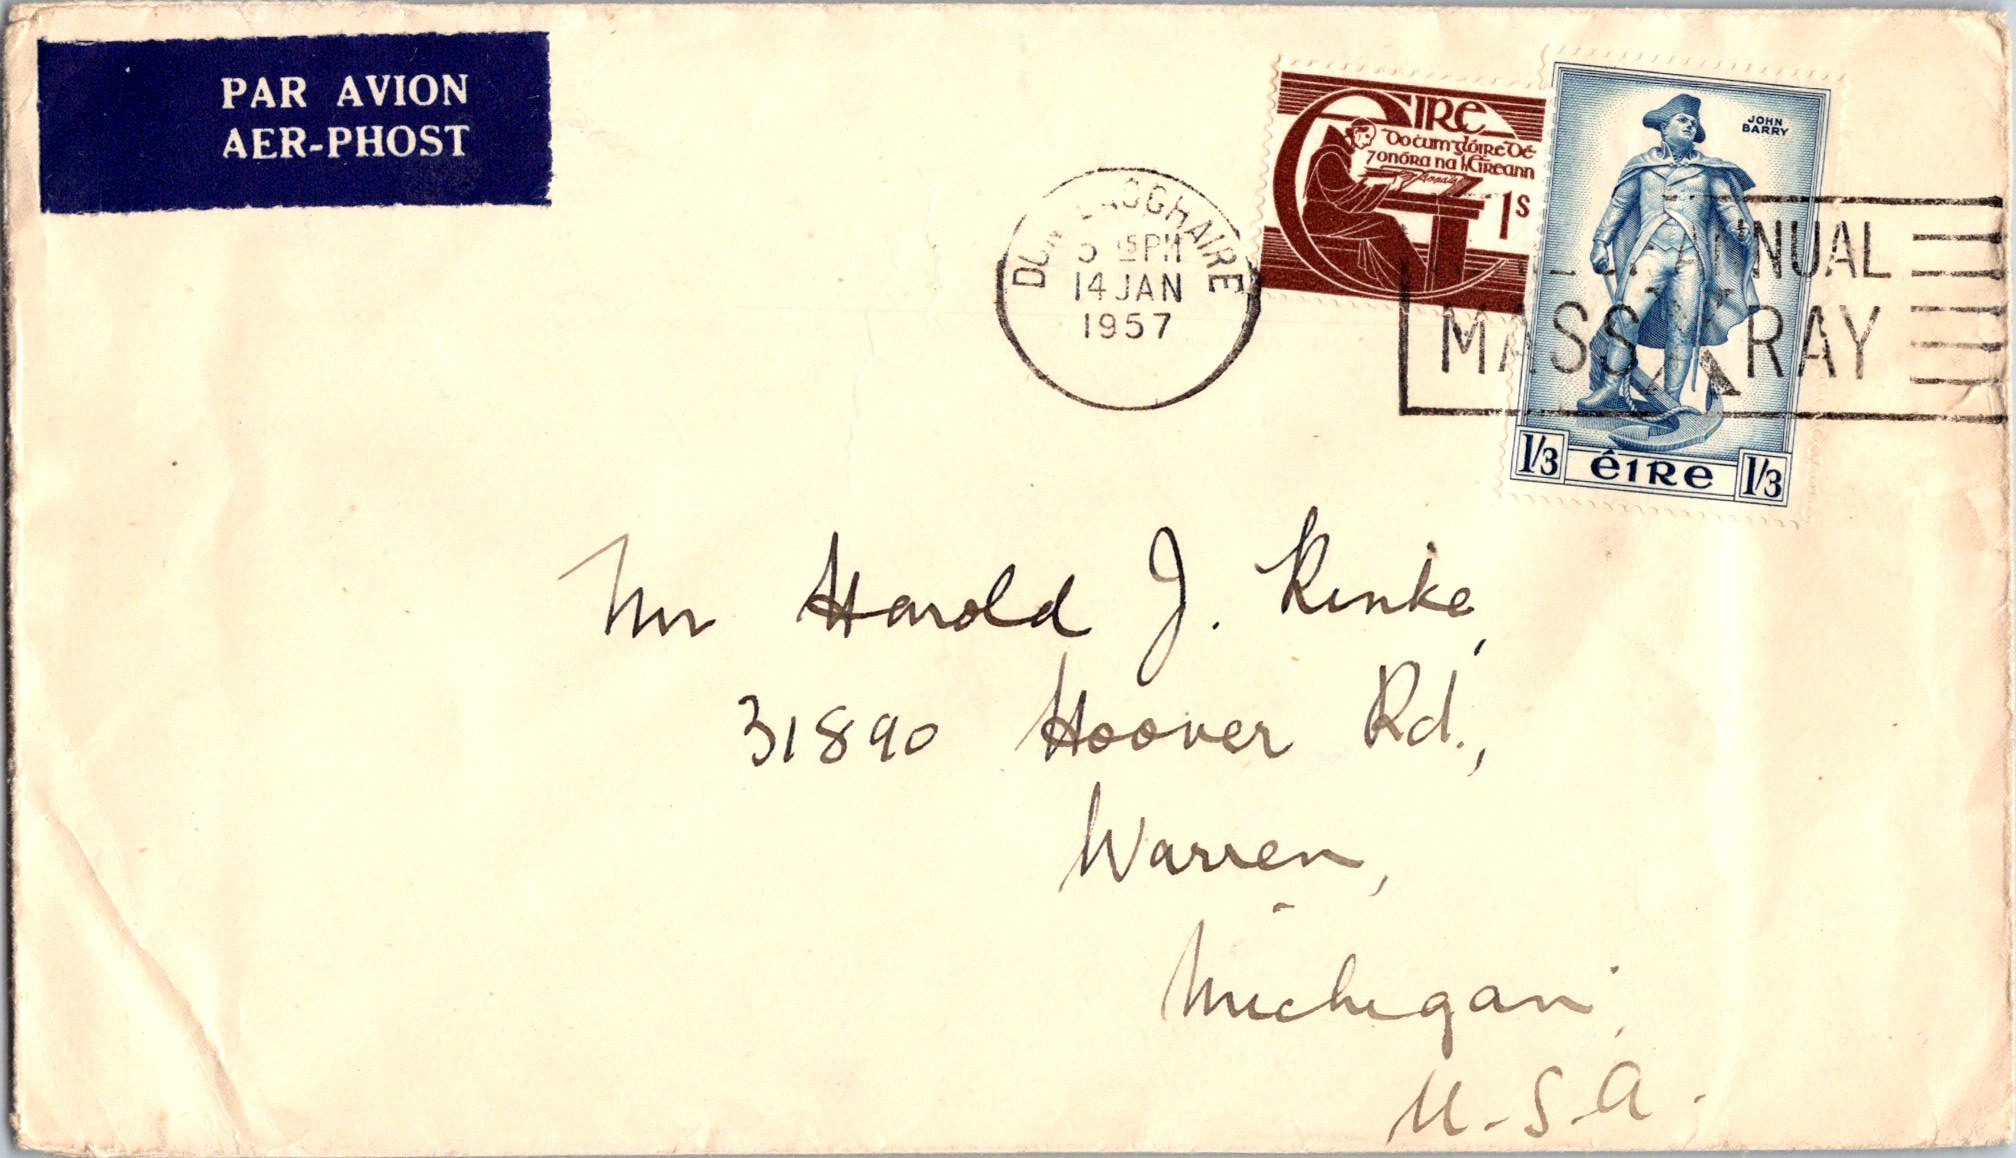 PAR AVION
AER-PHOST
DÚN LAOGHAIRE
15 PM
14 JAN
1957
EIRE
Do ċum glóire Dé
⁊ onóra na hÉireann
1s
JOHN
BARRY
ANNUAL
MASS X RAY
1/3 éire 1/3
Mr Harold J. Rinke,
31890 Hoover Rd.,
Warren,
Michigan,
U.S.A.